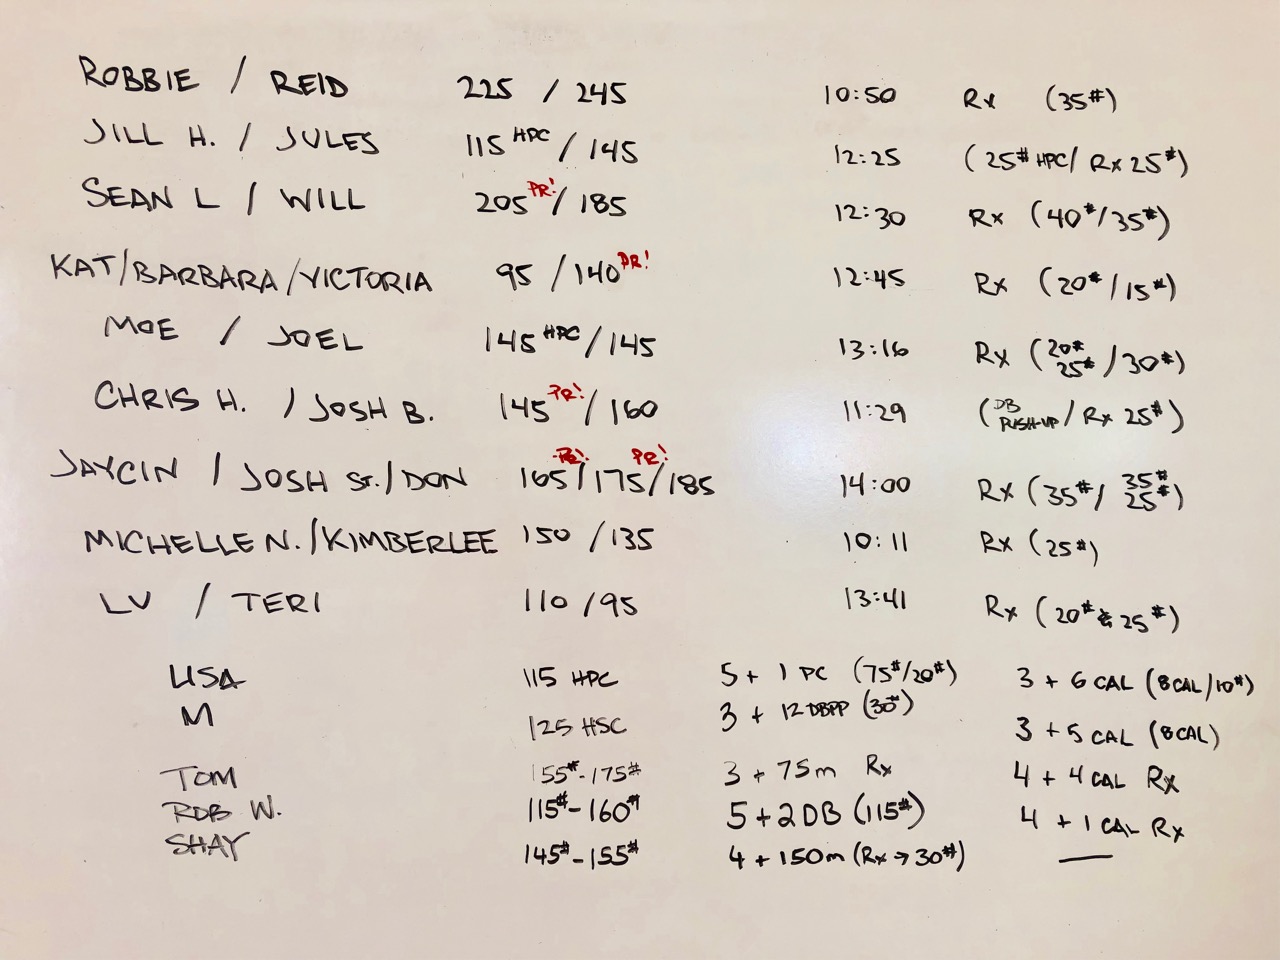 ROBBIE / REID 225 / 245 10:50 Rx (35#)
JILL H. / JULES 115 HPC / 145 12:25 (25# HPC / Rx 25#)
SEAN L / WILL 205 PR! / 185 12:30 Rx (40#/35#)
KAT/BARBARA/VICTORIA 95 / 140 PR! 12:45 Rx (20#/15#)
MOE / JOEL 145 HPC / 145 13:16 Rx (20# 25# / 30#)
CHRIS H. / JOSH B. 145 PR! / 160 11:29 (DB PUSH-UP / Rx 25#)
JAYCIN / JOSH ST. / DON 165 PR! / 175 PR! / 185 14:00 Rx (35# / 35# 25#)
MICHELLE N. / KIMBERLEE 150 / 135 10:11 Rx (25#)
LV / TERI 110 / 95 13:41 Rx (20# & 25#)
LISA 115 HPC 5 + 1 PC (75#/20#) 3 + 6 CAL (8 CAL/10#)
M 125 HSC 3 + 12 DBPP (30#) 3 + 5 CAL (8 CAL)
TOM 155# - 175# 3 + 75m Rx 4 + 4 CAL Rx
ROB W. 115# - 160# 5 + 2 DB (115#) 4 + 1 CAL Rx
SHAY 145# - 155# 4 + 150m (Rx → 30#) —